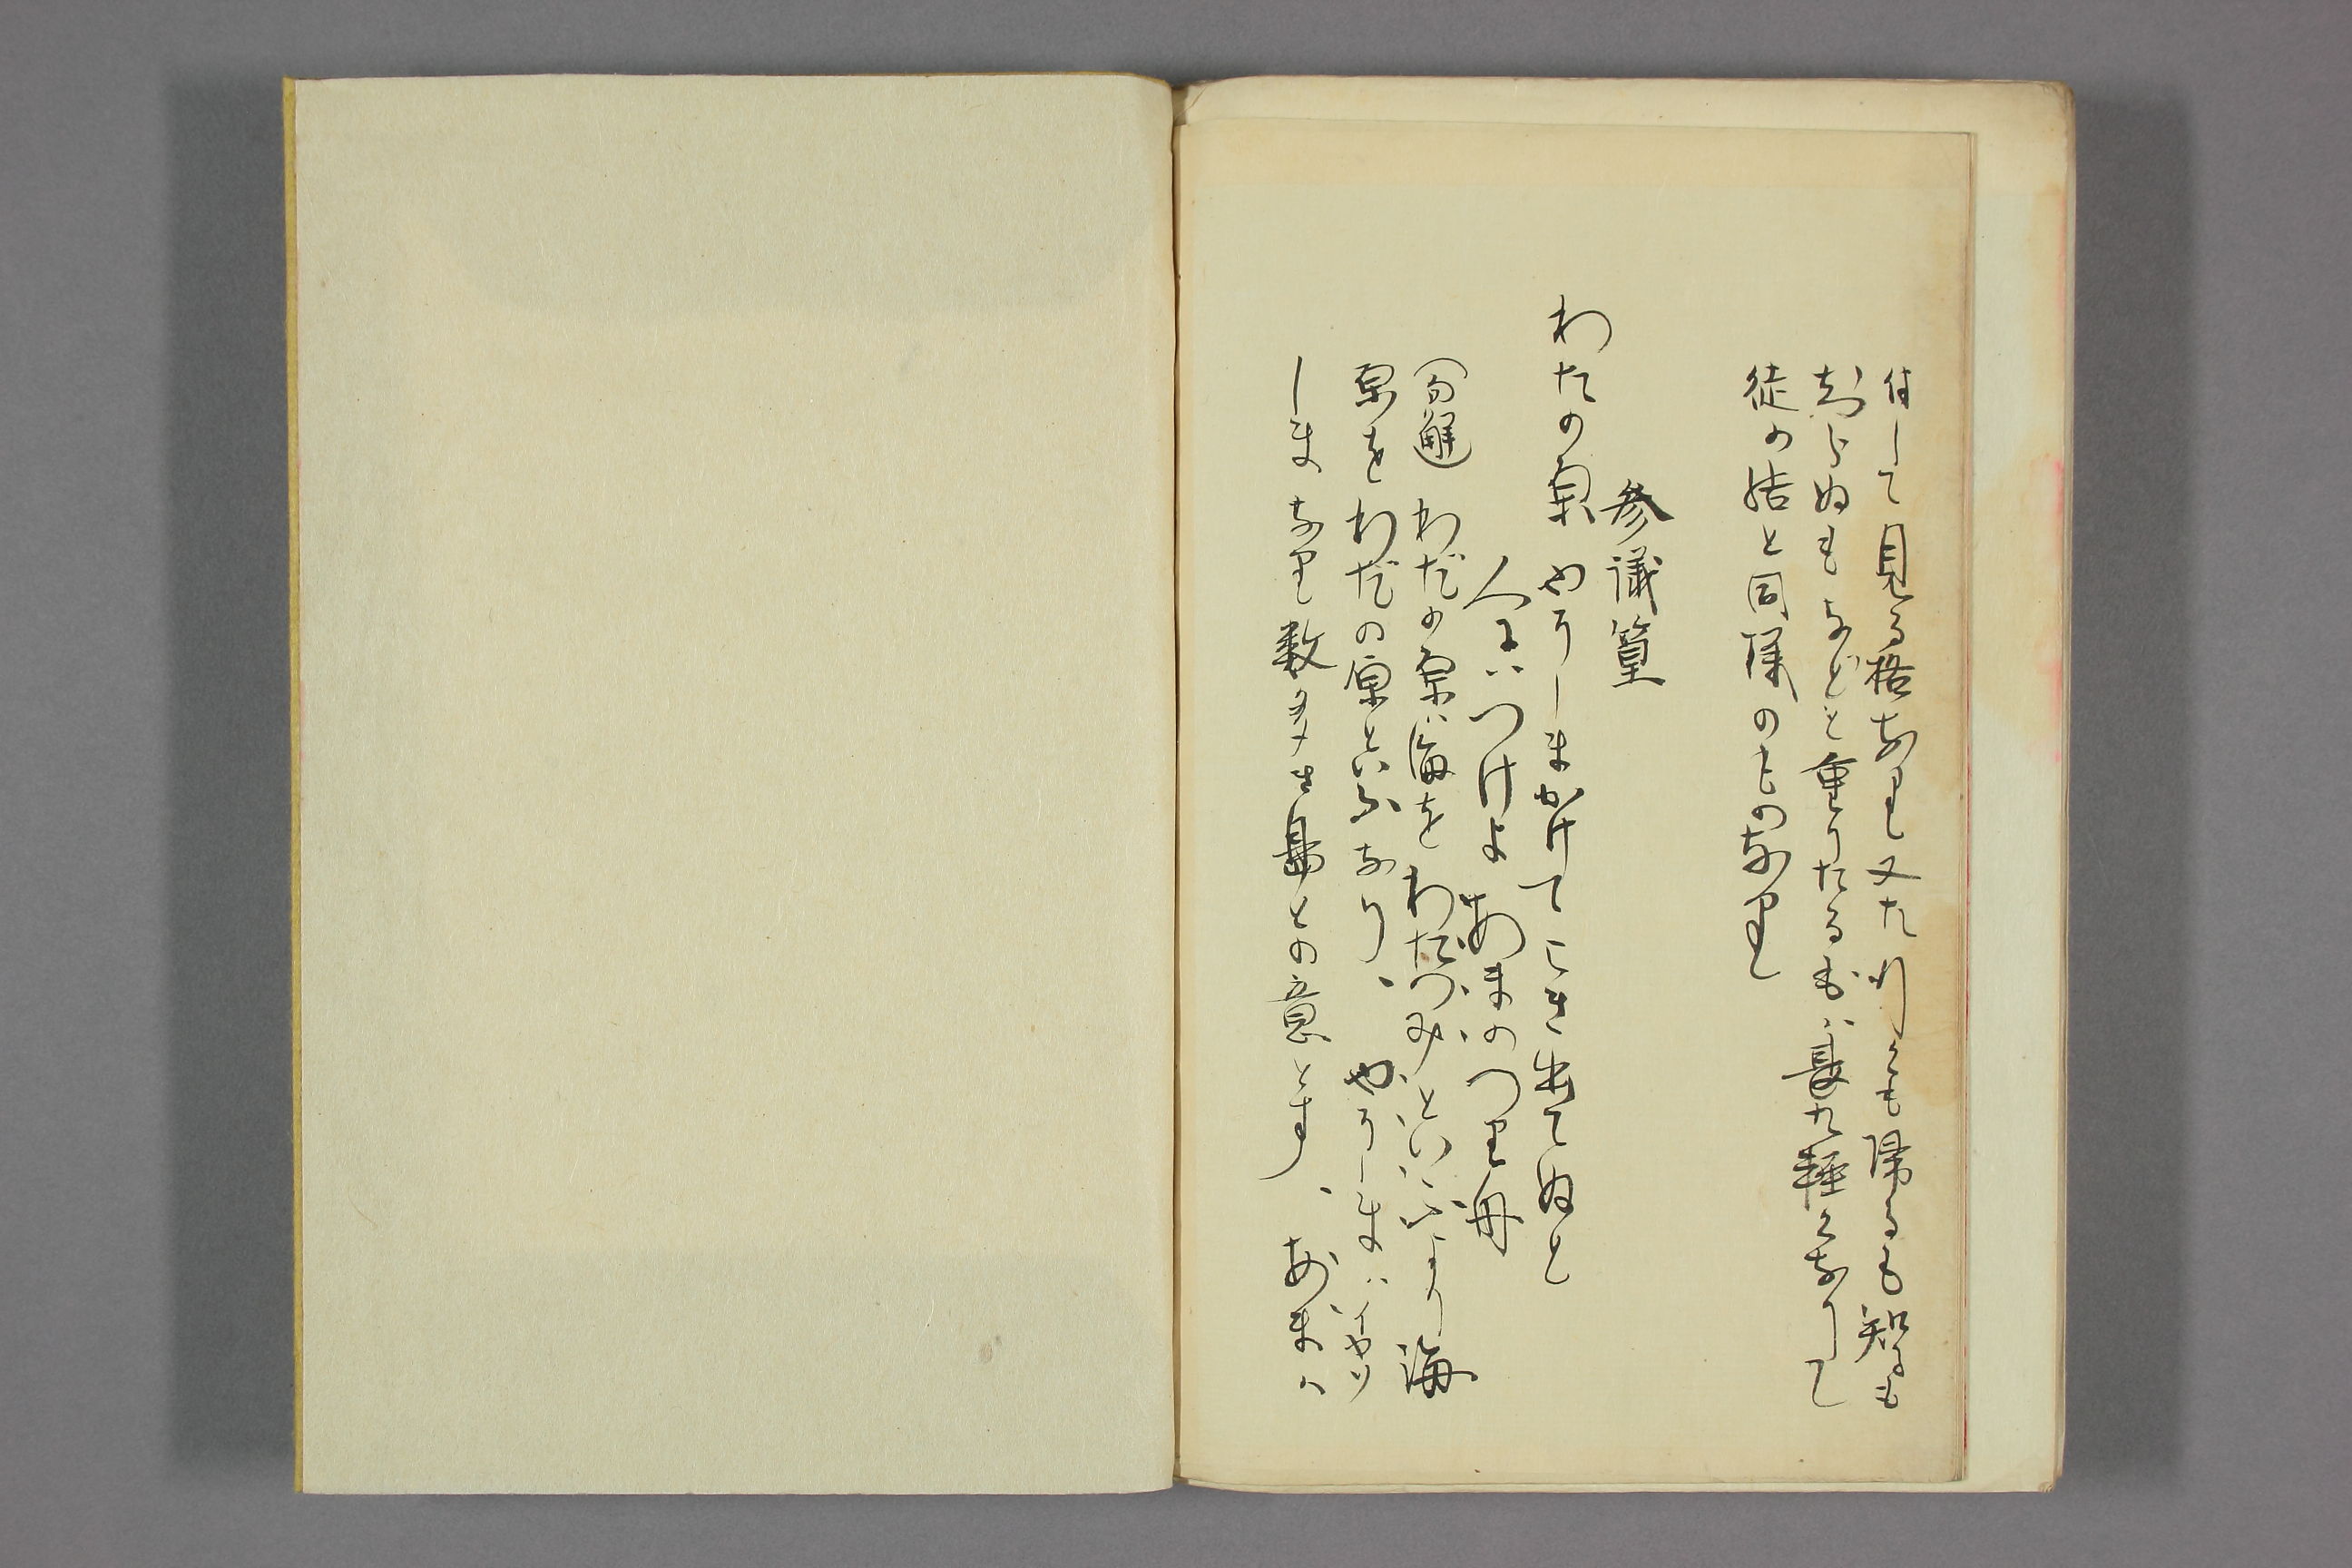 付して見る格なり又た行くも帰るも知るも
知らぬもなどと重りたるもは長九軽くなりて
徒の結と同様のものなり
参議篁
わたの原やそしまかけてこき出てぬと
人にはつけよあまのつり舟
(句解)わだの原は海をわだつみといふより海
原をわだの原といふなり、やそしまはイヤソ
しまなり数多き島との意とす、あまは